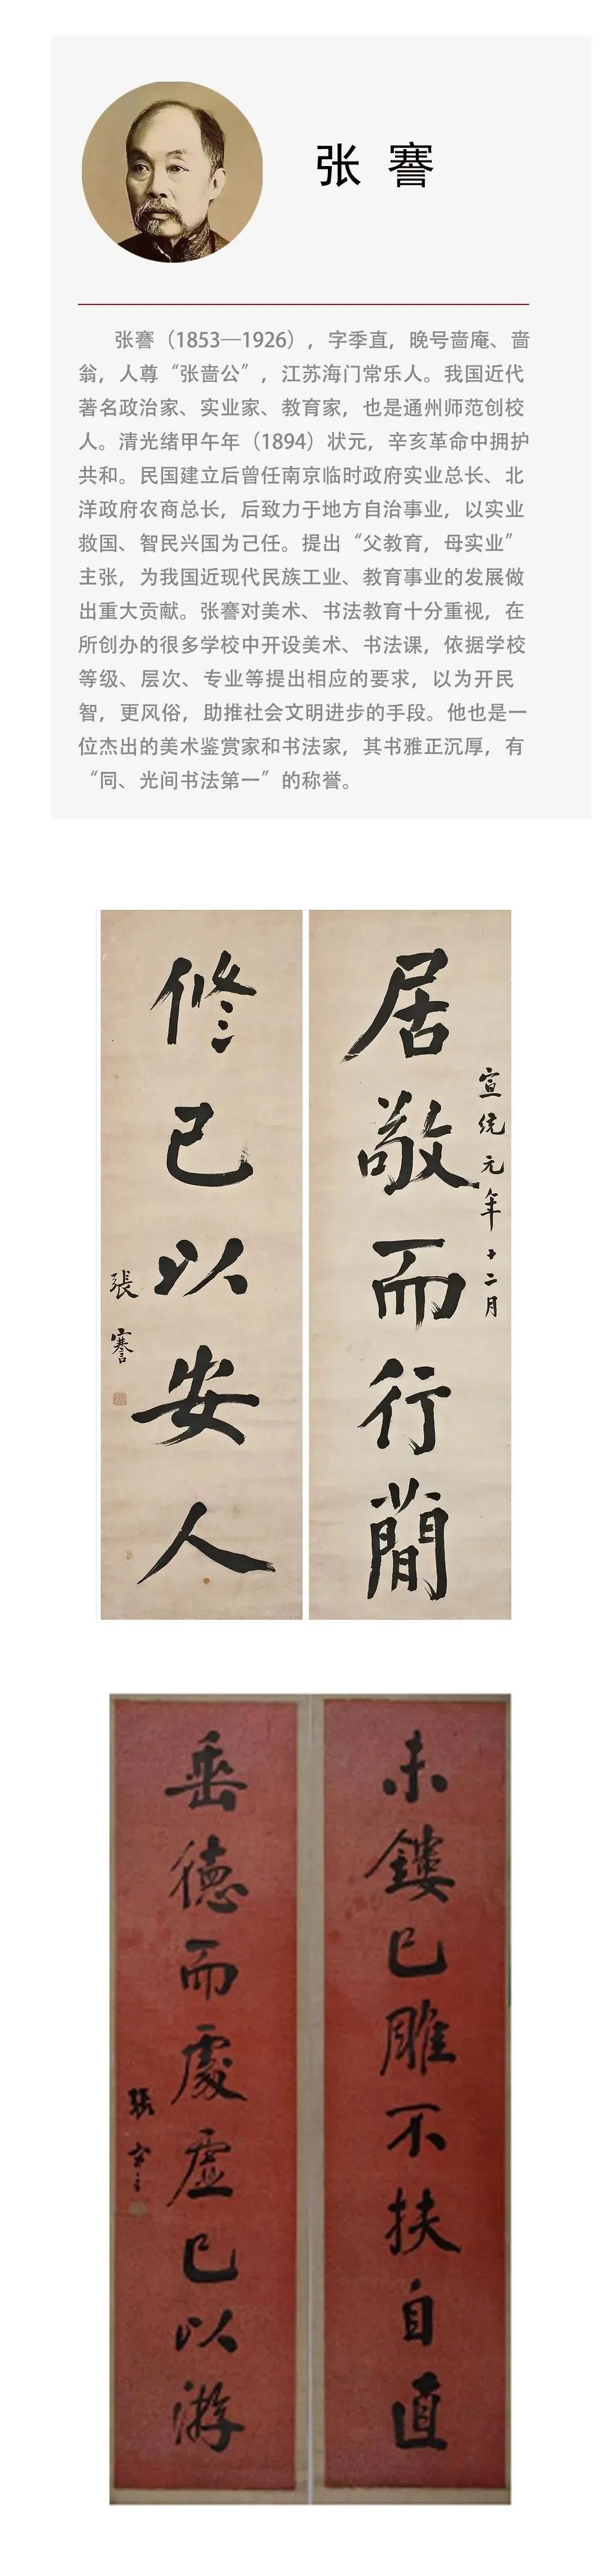 张 謇
张謇（1853—1926），字季直，晚号啬庵、啬
翁，人尊“张啬公”，江苏海门常乐人。我国近代
著名政治家、实业家、教育家，也是通州师范创校
人。清光绪甲午年（1894）状元，辛亥革命中拥护
共和。民国建立后曾任南京临时政府实业总长、北
洋政府农商总长，后致力于地方自治事业，以实业
救国、智民兴国为己任。提出“父教育，母实业”
主张，为我国近现代民族工业、教育事业的发展做
出重大贡献。张謇对美术、书法教育十分重视，在
所创办的很多学校中开设美术、书法课，依据学校
等级、层次、专业等提出相应的要求，以为开民
智，更风俗，助推社会文明进步的手段。他也是一
位杰出的美术鉴赏家和书法家，其书雅正沉厚，有
“同、光间书法第一”的称誉。
宣统元年十二月
居敬而行簡
修己以安人
張謇
未鏤已雕不扶自直
垂德而處虛己以游
張謇